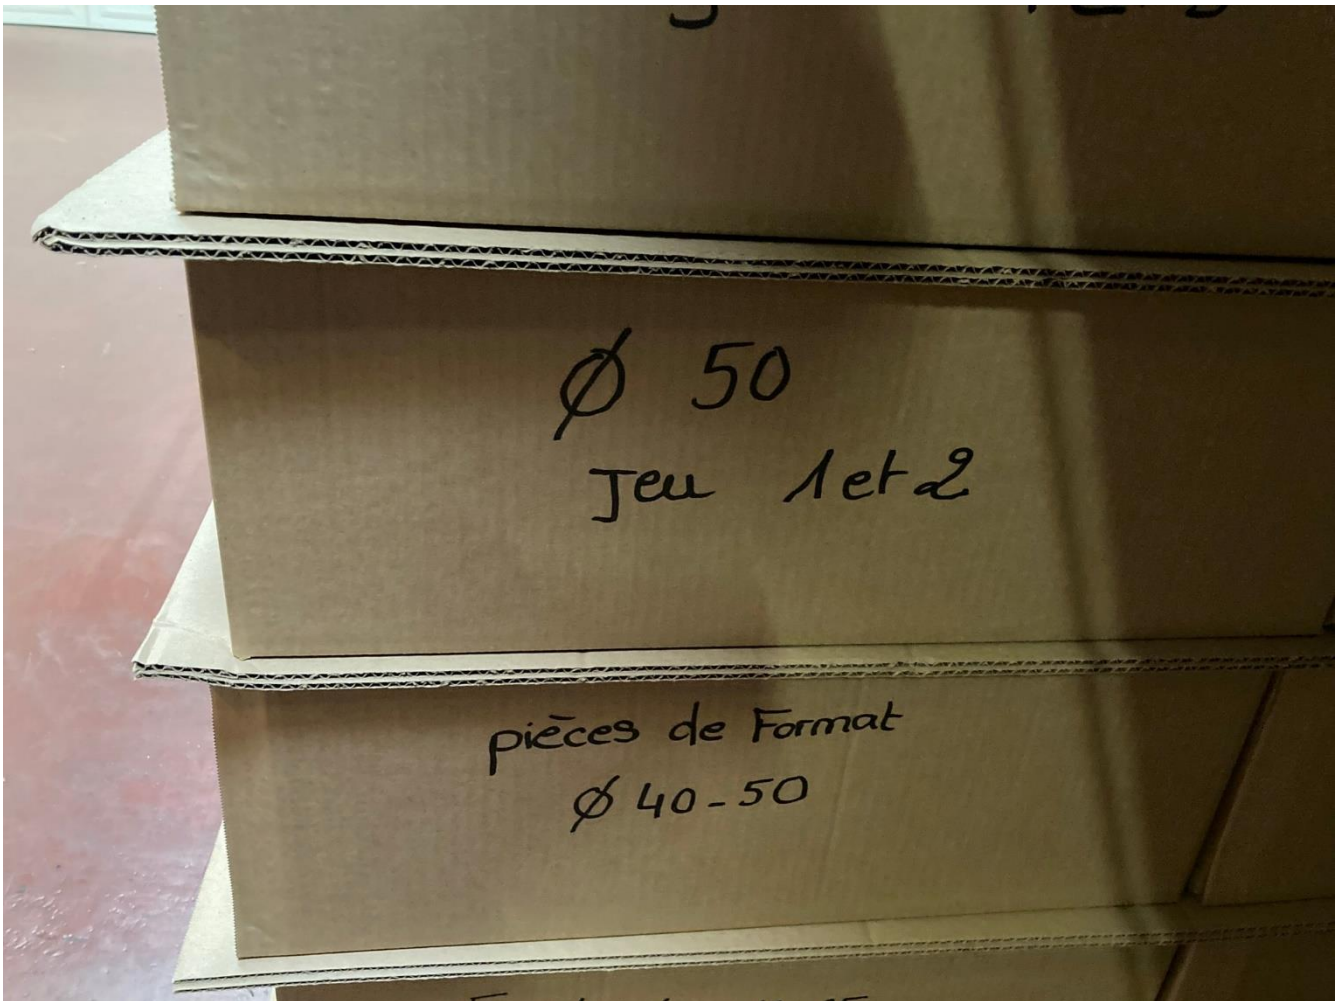 Ø 50
Jeu 1 et 2
pièces de Format
Ø 40-50